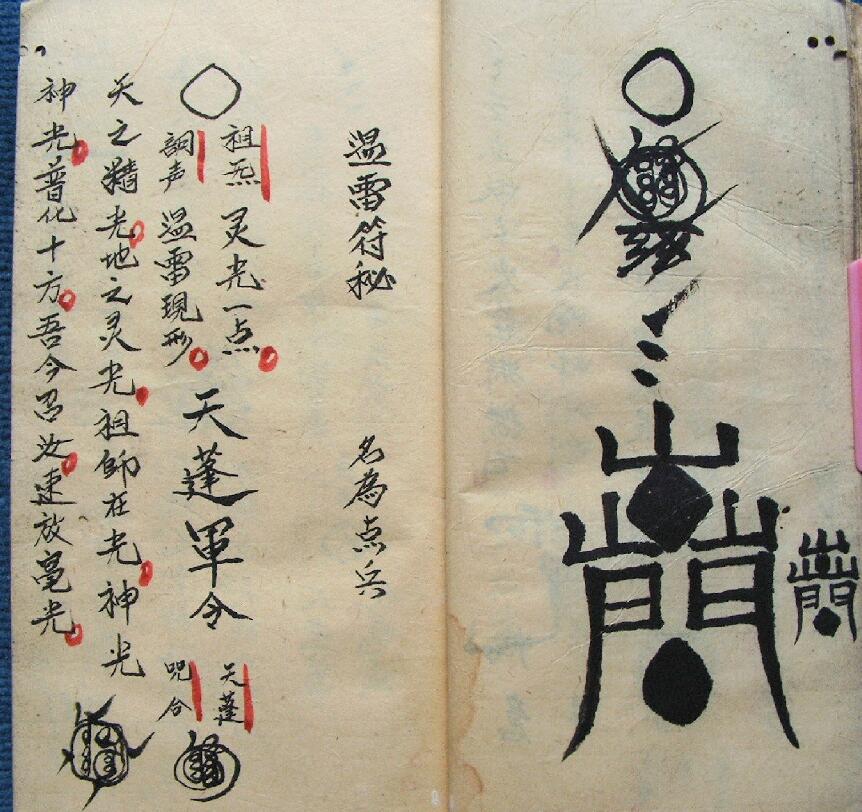 温雷符秘 名為点兵
祖炁 灵光一点 天蓬軍令 天蓬
詞声 温雷現形 咒合
天之精光地之灵光祖師在光神光
神光普化十方吾今召汝速放毫光